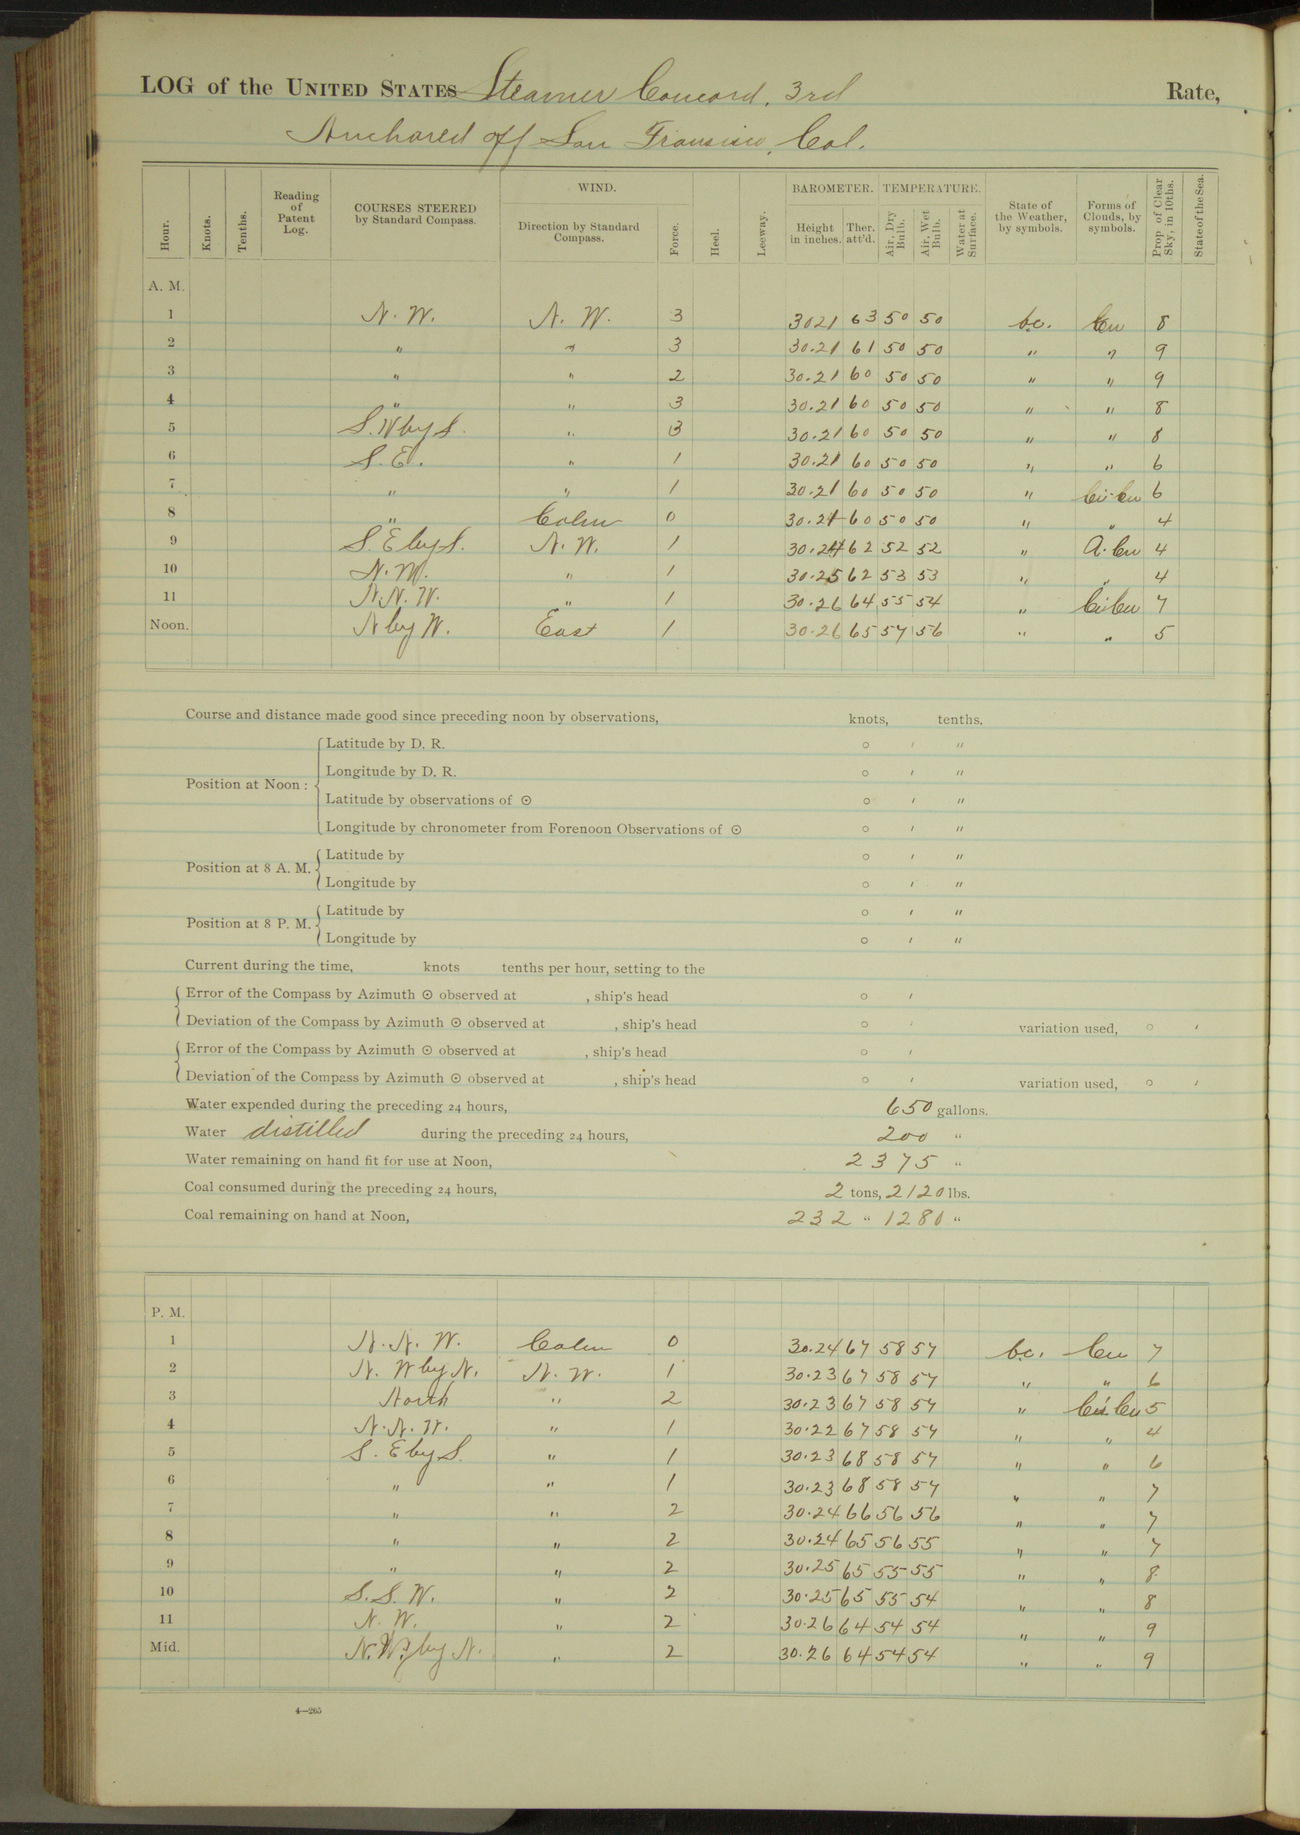 LOG of the UNITED STATES Steamer Concord, 3rd Rate,
Anchored off San Fransisco, Cal.
Hour. Knots. Tenths. Reading of Patent Log. COURSES STEERED by Standard Compass. WIND. Direction by Standard Compass. Force. Heel. Leeway. BAROMETER. Height in inches. Ther. att'd. TEMPERATURE. Air, Dry Bulb. Air, Wet Bulb. Water at Surface. State of the Weather, by symbols. Forms of Clouds, by symbols. Prop. of Clear Sky, in 10ths. State of the Sea.
A. M.
1 N. W. N. W. 3 3021 63 50 50 b.c. Cu 8
2 " " 3 30.21 61 50 50 " " 9
3 " " 2 30.21 60 50 50 " " 9
4 " " 3 30.21 60 50 50 " " 8
5 S. W by S. " 3 30.21 60 50 50 " " 8
6 S. E. " 1 30.21 60 50 50 " " 6
7 " " 1 30.21 60 50 50 " Ci-Cu 6
8 " Calm 0 30.21 60 50 50 " " 4
9 S. E by S. N. W. 1 30.24 62 52 52 " A. Cu 4
10 N. W. " 1 30.25 62 53 53 " " 4
11 N. N. W. " 1 30.26 64 55 54 " Ci Cu 7
Noon. N by W. East 1 30.26 65 57 56 " " 5
Course and distance made good since preceding noon by observations, knots, tenths.
Position at Noon: Latitude by D. R. ° ' "
Longitude by D. R. ° ' "
Latitude by observations of ☉ ° ' "
Longitude by chronometer from Forenoon Observations of ☉ ° ' "
Position at 8 A. M. Latitude by ° ' "
Longitude by ° ' "
Position at 8 P. M. Latitude by ° ' "
Longitude by ° ' "
Current during the time, knots tenths per hour, setting to the
Error of the Compass by Azimuth ☉ observed at , ship's head ° '
Deviation of the Compass by Azimuth ☉ observed at , ship's head ° ' variation used, ° '
Error of the Compass by Azimuth ☉ observed at , ship's head ° '
Deviation of the Compass by Azimuth ☉ observed at , ship's head ° ' variation used, ° '
Water expended during the preceding 24 hours, 650 gallons.
Water distilled during the preceding 24 hours, 200 "
Water remaining on hand fit for use at Noon, 2375 "
Coal consumed during the preceding 24 hours, 2 tons, 2120 lbs.
Coal remaining on hand at Noon, 232 " 1280 "
P. M.
1 N. N. W. Calm 0 30.24 67 58 57 b.c. Cu 7
2 N. W by N. N. W. 1 30.23 67 58 57 " " 6
3 North " 2 30.23 67 58 57 " Ci Cu 5
4 N. N. W. " 1 30.22 67 58 57 " " 4
5 S. E by S. " 1 30.23 68 58 57 " " 6
6 " " 1 30.23 68 58 57 " " 7
7 " " 2 30.24 66 56 56 " " 7
8 " " 2 30.24 65 56 55 " " 7
9 " " 2 30.25 65 55 55 " " 8
10 S. S. W. " 2 30.25 65 55 54 " " 8
11 N. W. " 2 30.26 64 54 54 " " 9
Mid. N. W. by N. " 2 30.26 64 54 54 " " 9
4—265